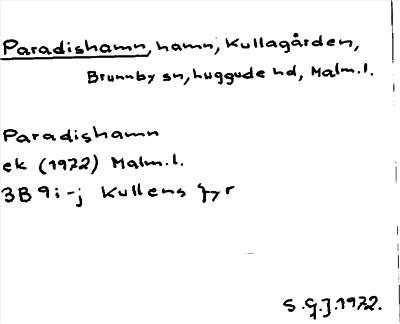 Paradishamn, hamn, Kullagården,
Brunnby sn, huggude hd, Malm.l.
Paradishamn
ek (1972) Malm.l.
3B 9i-j Kullens fyr
S.G.J.1972.